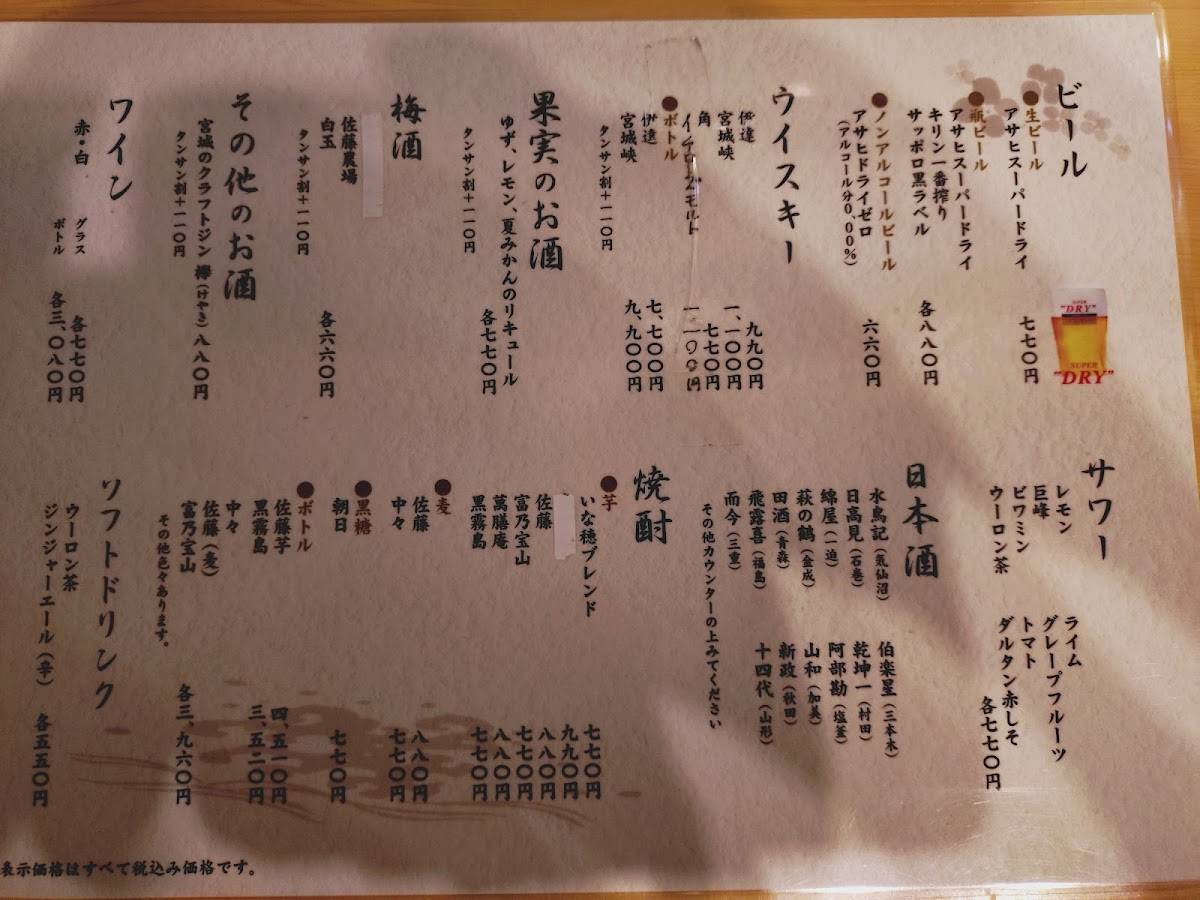 ビール
●生ビール
アサヒスーパードライ 七七〇円
●瓶ビール
アサヒスーパードライ
キリン一番搾り
サッポロ黒ラベル 各八八〇円
●ノンアルコールビール
アサヒドライゼロ 六六〇円
(アルコール分0.00%)
SUPER
"DRY"
SUPER
"DRY"
ウイスキー
伊達 九九〇円
宮城峡 一、一〇〇円
角 七七〇円
イチローズモルト 一、一〇〇円
●ボトル
伊達 七、七〇〇円
宮城峡 九、九〇〇円
タンサン割+一一〇円
果実のお酒
ゆず、レモン、夏みかんのリキュール 各七七〇円
タンサン割+一一〇円
梅酒
佐藤農場
白玉 各六六〇円
タンサン割+一一〇円
その他のお酒
宮城のクラフトジン 欅(けやき) 八八〇円
タンサン割+一一〇円
ワイン
赤・白 グラス 各七七〇円
ボトル 各三、〇八〇円
サワー
レモン ライム
巨峰 グレープフルーツ
ビワミン トマト
ウーロン茶 ダルタン赤しそ
各七七〇円
日本酒
水鳥記(気仙沼) 伯楽星(三本木)
日高見(石巻) 乾坤一(村田)
綿屋(一迫) 阿部勘(塩釜)
萩の鶴(金成) 山和(加美)
田酒(青森) 新政(秋田)
飛露喜(福島) 十四代(山形)
而今(三重)
その他カウンターの上みてください
焼酎
●芋
いな穂ブレンド 七七〇円
九九〇円
佐藤 八八〇円
富乃宝山 七七〇円
萬膳庵 八八〇円
黒霧島 七七〇円
●麦
佐藤 八八〇円
中々 七七〇円
●黒糖
朝日 七七〇円
●ボトル
佐藤芋 四、五一〇円
黒霧島 三、五二〇円
中々
佐藤(麦)
富乃宝山 各三、九六〇円
その他色々あります。
ソフトドリンク
ウーロン茶
ジンジャーエール(辛) 各五五〇円
表示価格はすべて税込み価格です。